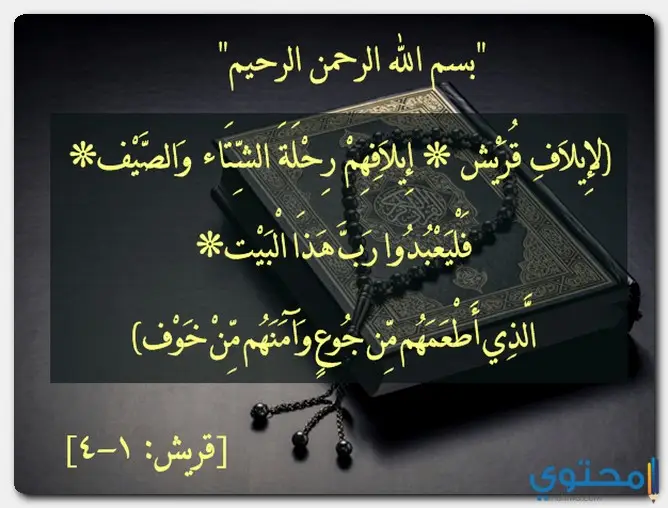 "بسم الله الرحمن الرحيم"
(لإِيلاَفِ قُرَيْش * إِيلاَفِهِمْ رِحْلَةَ الشِّتَاء وَالصَّيْف*
فَلْيَعْبُدُوا رَبَّ هَذَا الْبَيْت*
الَّذِي أَطْعَمَهُم مِّن جُوعٍ وَآمَنَهُم مِّنْ خَوْف)
[قريش: ١-٤]
محتوي